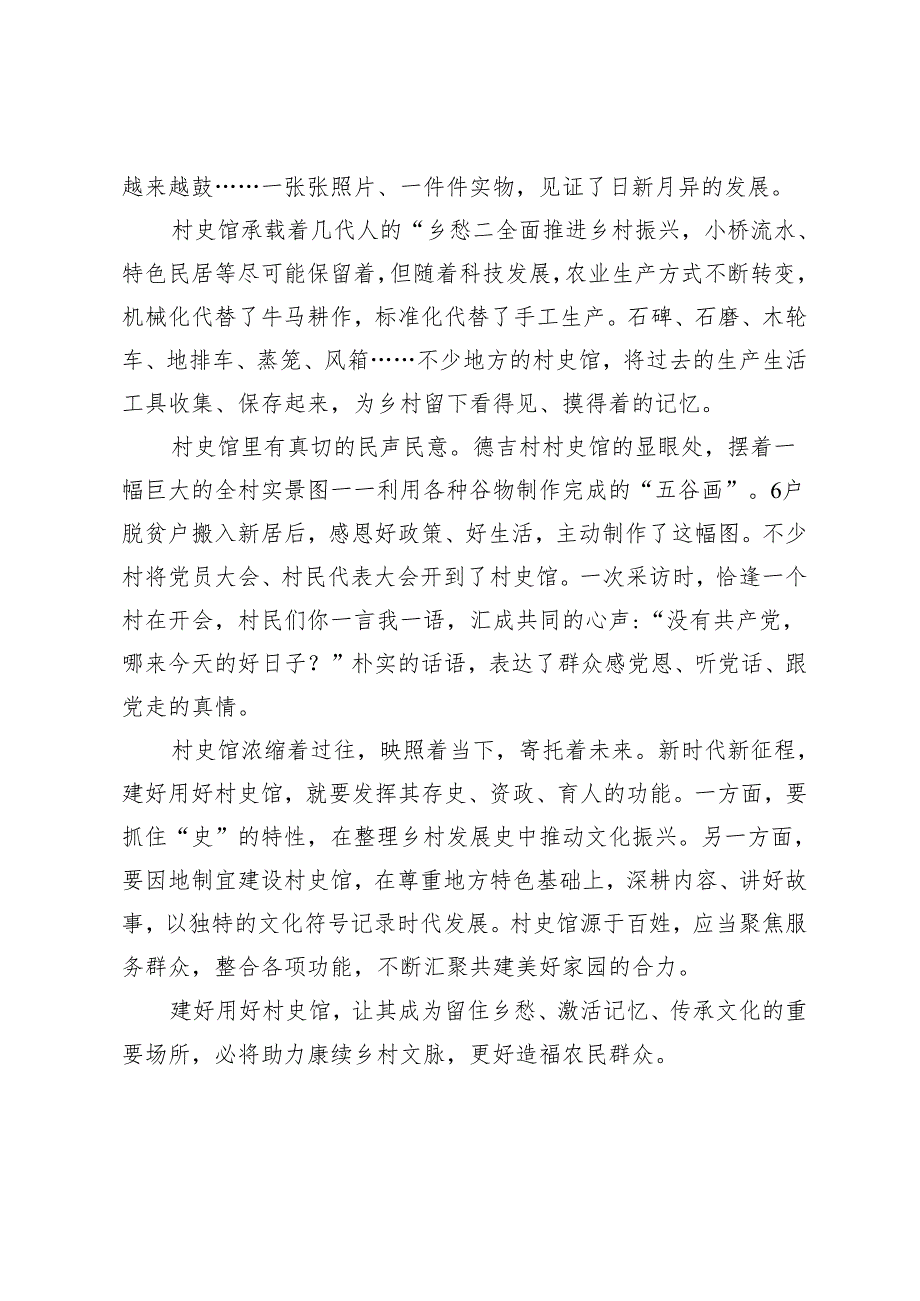 越来越鼓……一张张照片、一件件实物，见证了日新月异的发展。
村史馆承载着几代人的“乡愁二全面推进乡村振兴，小桥流水、
特色民居等尽可能保留着，但随着科技发展，农业生产方式不断转变，
机械化代替了牛马耕作，标准化代替了手工生产。石碑、石磨、木轮
车、地排车、蒸笼、风箱……不少地方的村史馆，将过去的生产生活
工具收集、保存起来，为乡村留下看得见、摸得着的记忆。
村史馆里有真切的民声民意。德吉村村史馆的显眼处，摆着一
幅巨大的全村实景图一一利用各种谷物制作完成的“五谷画”。6户
脱贫户搬入新居后，感恩好政策、好生活，主动制作了这幅图。不少
村将党员大会、村民代表大会开到了村史馆。一次采访时，恰逢一个
村在开会，村民们你一言我一语，汇成共同的心声：“没有共产党，
哪来今天的好日子？”朴实的话语，表达了群众感党恩、听党话、跟
党走的真情。
村史馆浓缩着过往，映照着当下，寄托着未来。新时代新征程，
建好用好村史馆，就要发挥其存史、资政、育人的功能。一方面，要
抓住“史”的特性，在整理乡村发展史中推动文化振兴。另一方面，
要因地制宜建设村史馆，在尊重地方特色基础上，深耕内容、讲好故
事，以独特的文化符号记录时代发展。村史馆源于百姓，应当聚焦服
务群众，整合各项功能，不断汇聚共建美好家园的合力。
建好用好村史馆，让其成为留住乡愁、激活记忆、传承文化的重
要场所，必将助力康续乡村文脉，更好造福农民群众。